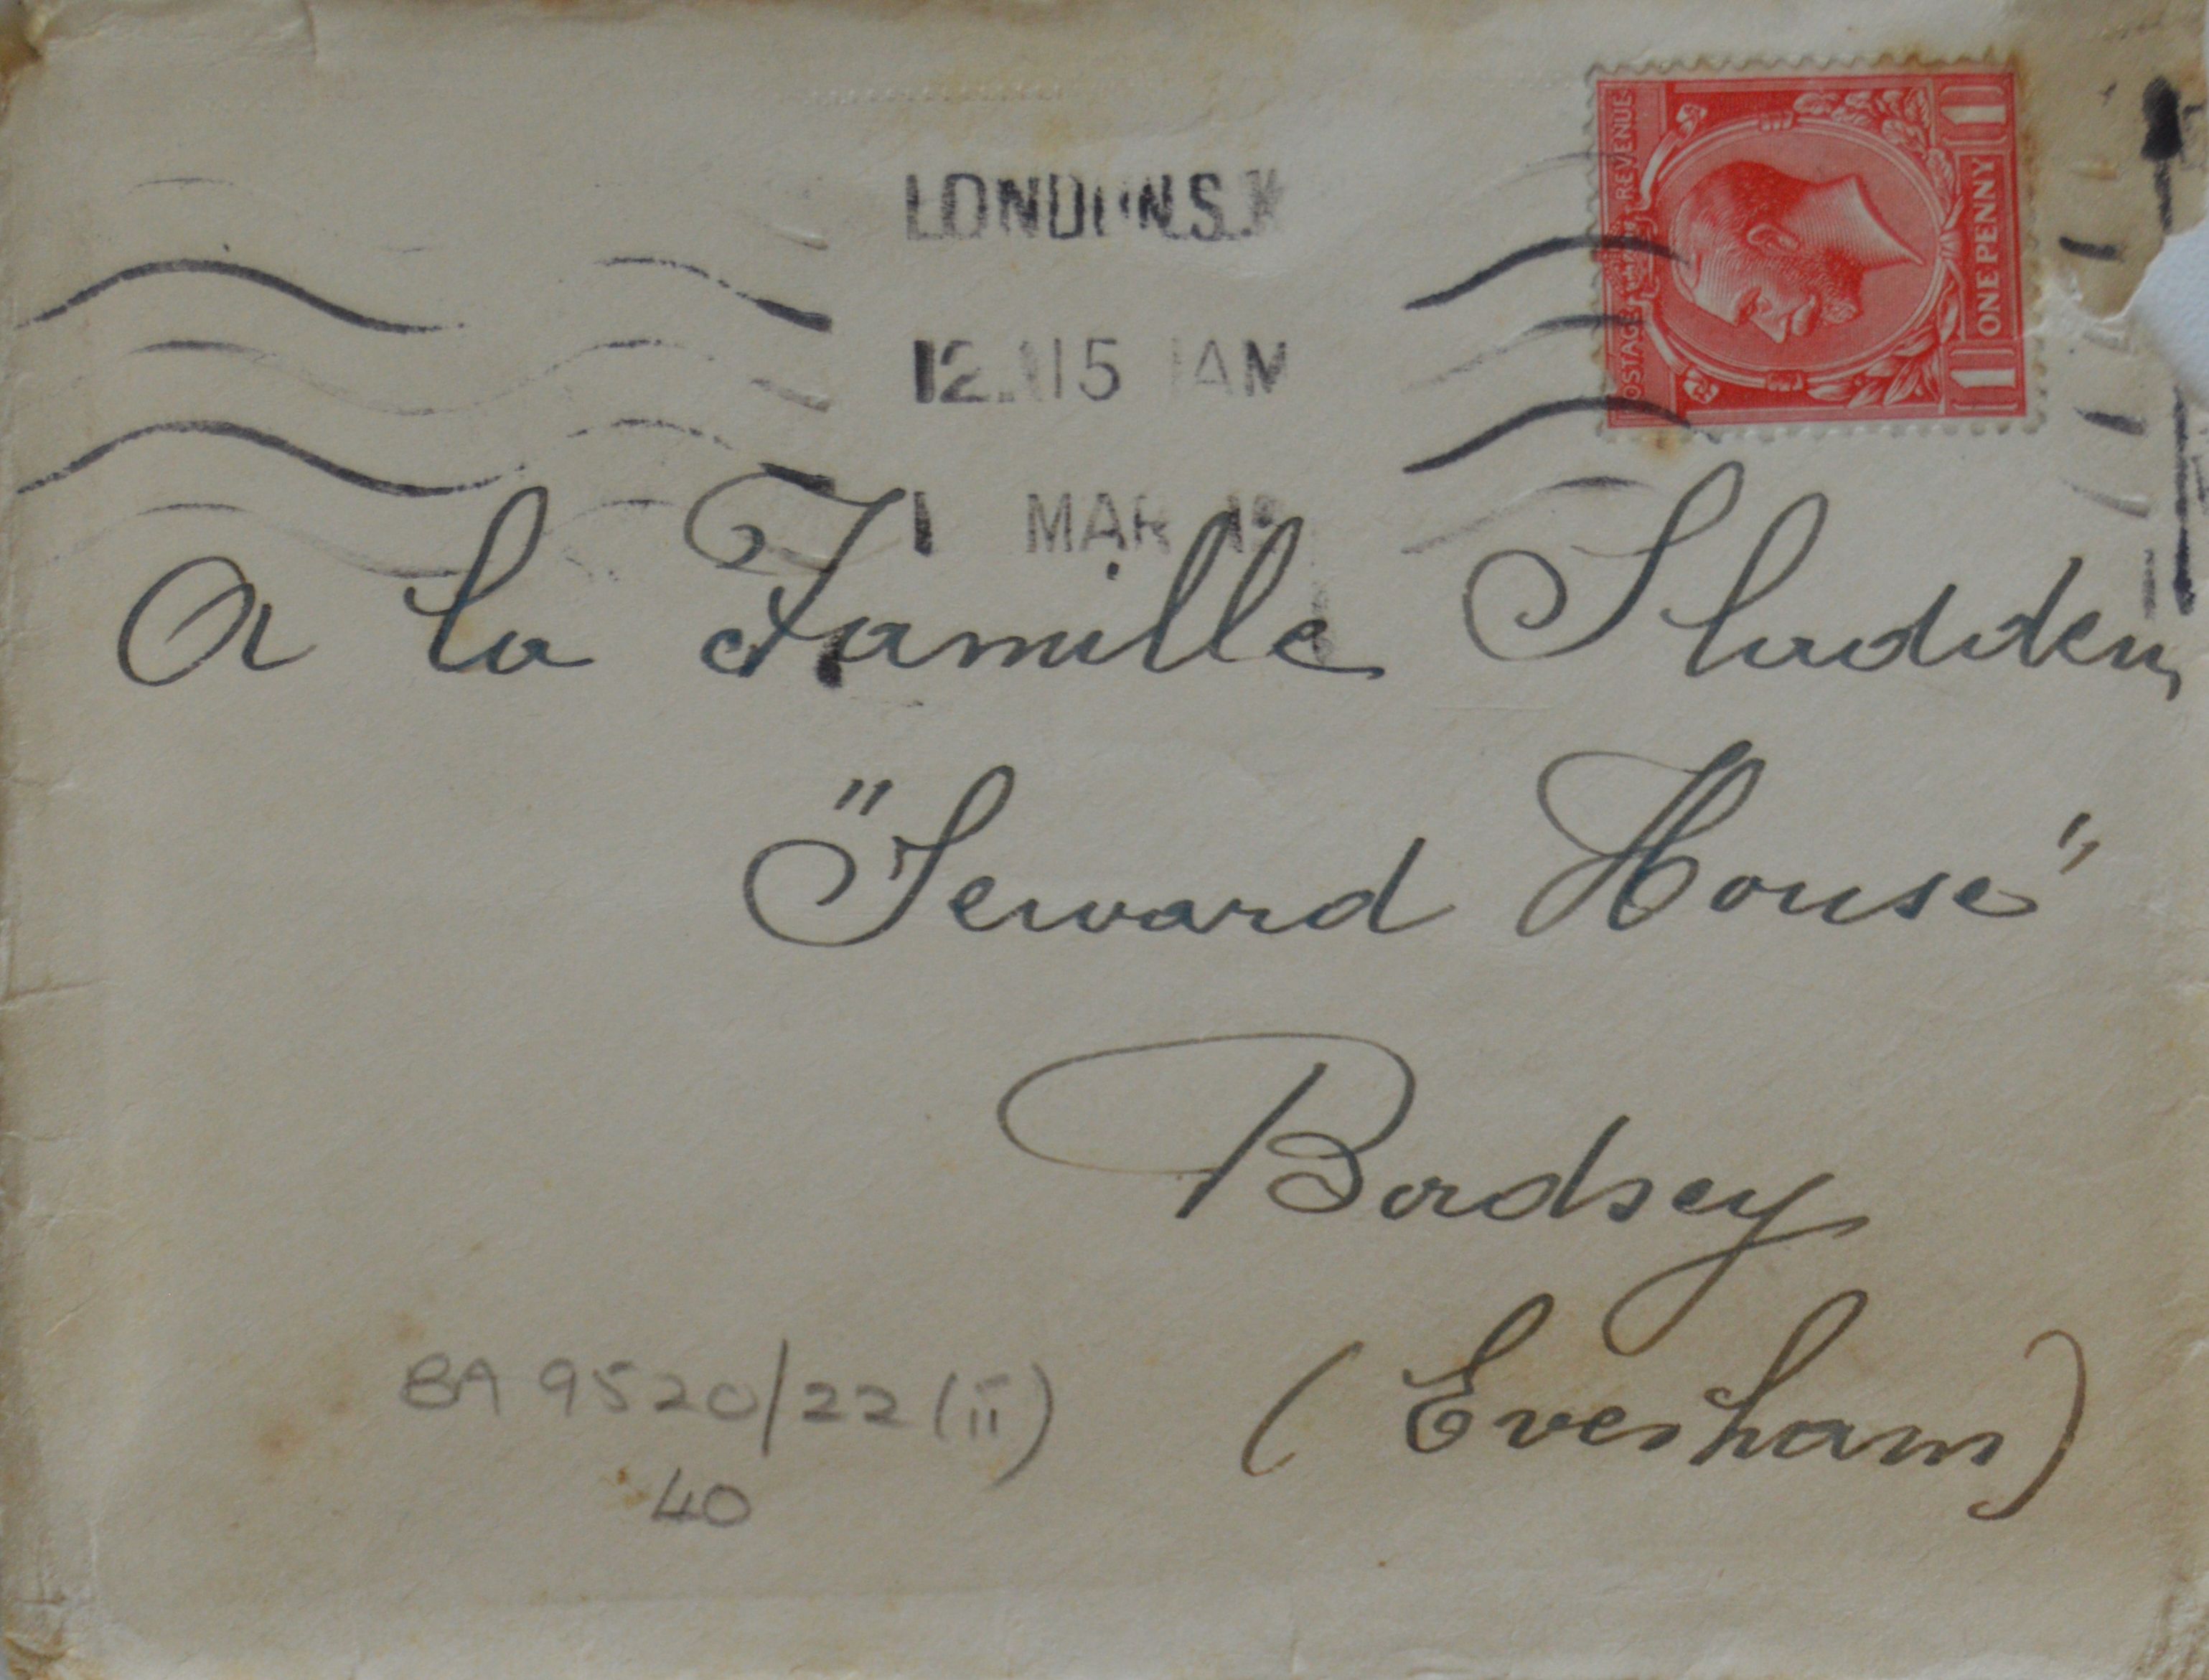 LONDON.S.W
12.15 AM
1 MAR
POSTAGE REVENUE
1 ONE PENNY 1
A la Famille Sladden
"Seward House"
Badsey
(Evesham)
BA 9520/22 (ii)
40